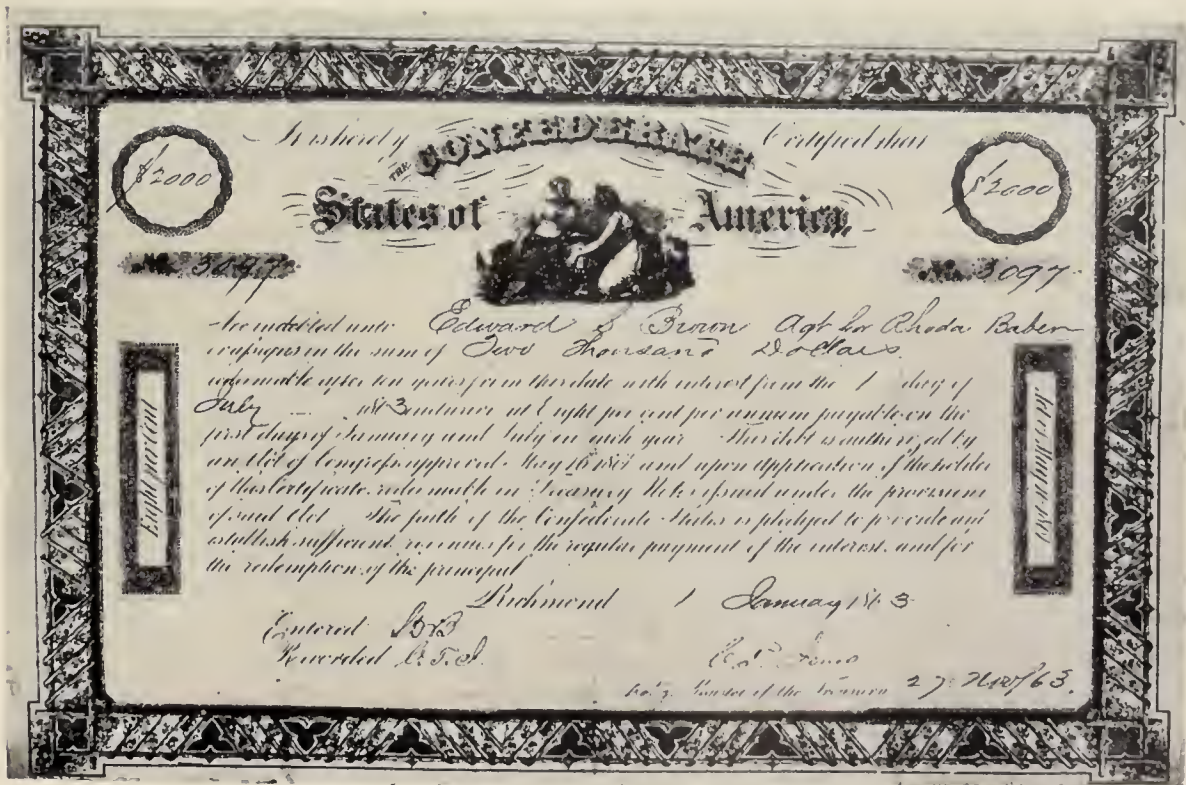 It is hereby Certified that
THE CONFEDERATE
States of America,
$2000 $2000
No. 3097 No. 3097
Are indebted unto Edward S Brown Agt for Rhoda Baber
or assigns in the sum of Two Thousand Dollars
redeemable after ten years from this date with interest from the 1 day of
July 1863 inclusive at Eight per cent per annum payable on the
first days of January and July in each year This debt is authorized by
an Act of Congress approved May 16 1861 and upon application of the holder
of this Certificate, redeemable in Treasury Notes issued under the provisions
of said Act The faith of the Confederate States is pledged to provide and
establish sufficient revenues for the regular payment of the interest, and for
the redemption of the principal
Eight per cent
Act 16 May 1861
Richmond 1 January 1863
Entered
Recorded
Register of the Treasury 27 Nov/63.